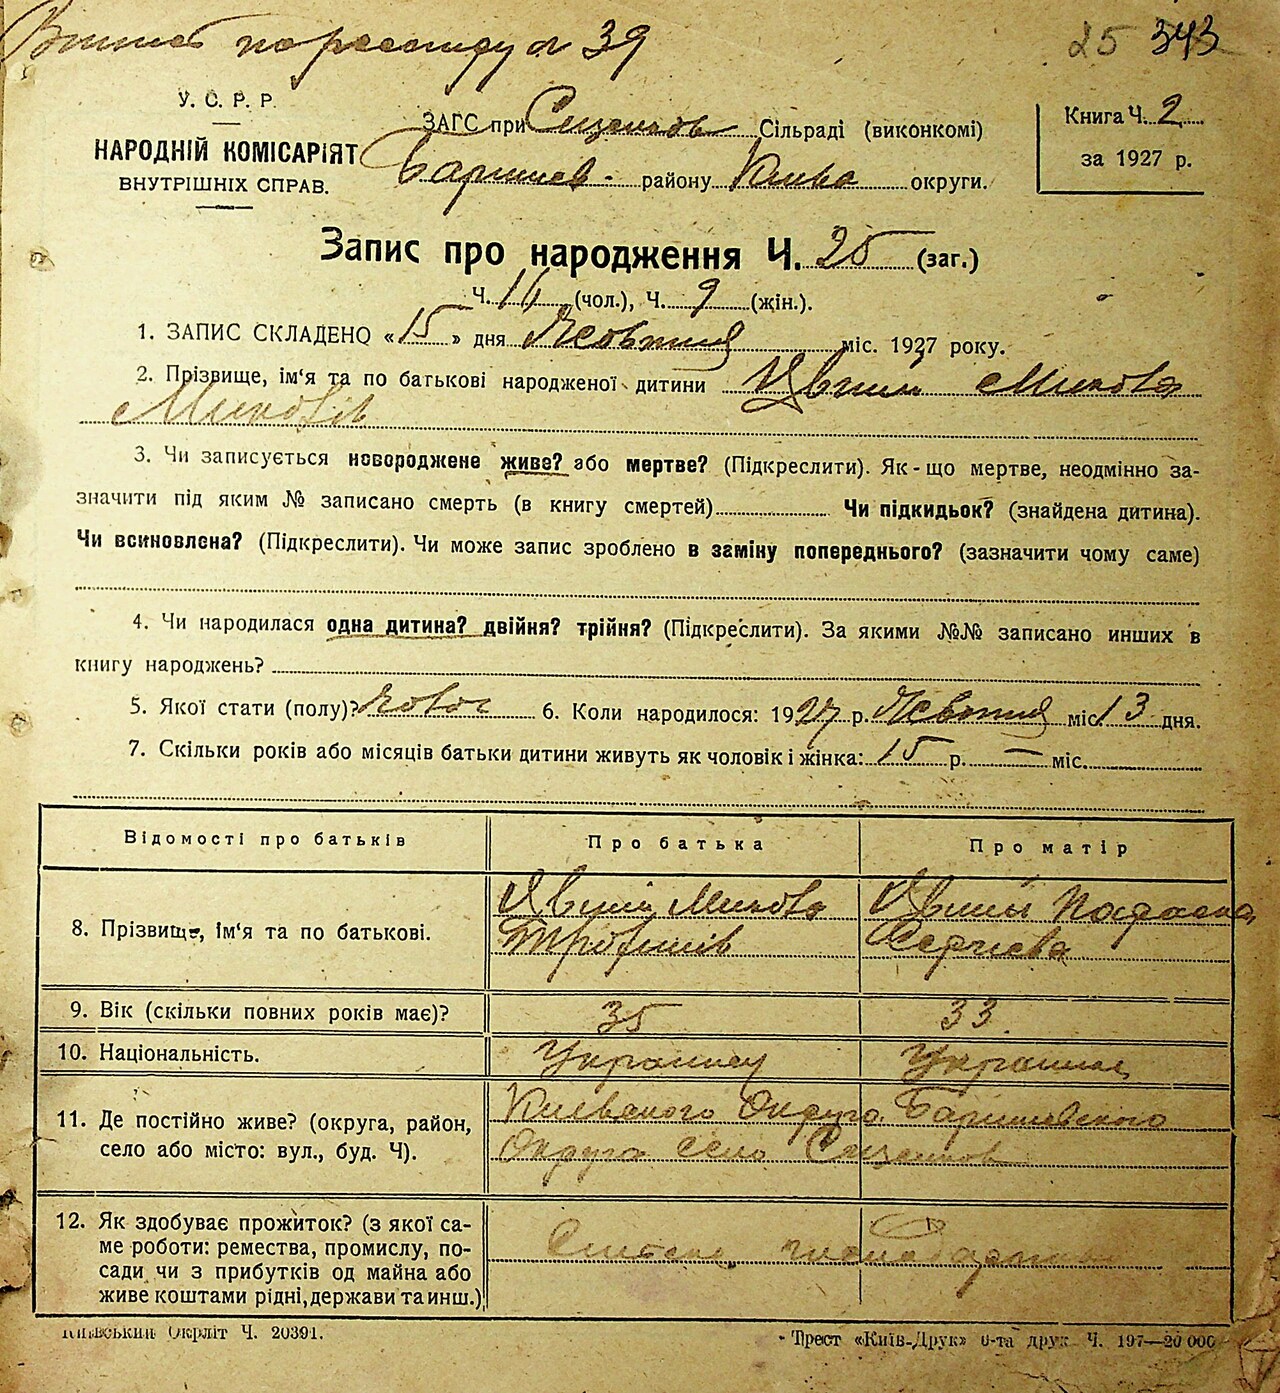 по реєстру № 39
25 343
У. С. Р. Р.
НАРОДНІЙ КОМІСАРІЯТ
ВНУТРІШНІХ СПРАВ.
ЗАГС при Сезенков Сільраді (виконкомі)
Баришев. району Києва округи.
Книга Ч. 2
за 1927 р.
Запис про народження Ч. 25 (заг.)
Ч. 16 (чол.), Ч. 9 (жін.).
1. ЗАПИС СКЛАДЕНО « 15 » дня Жовтня міс. 1927 року.
2. Прізвище, ім‘я та по батькові народженої дитини Микола
Миколів
3. Чи записується новороджене живе? або мертве? (Підкреслити). Як-що мертве, неодмінно за-
значити під яким № записано смерть (в книгу смертей) Чи підкидьок? (знайдена дитина).
Чи всиновлена? (Підкреслити). Чи може запис зроблено в заміну попереднього? (зазначити чому саме)
4. Чи народилася одна дитина? двійня? трійня? (Підкреслити). За якими №№ записано инших в
книгу народжень?
5. Якої стати (полу)? 6. Коли народилося: 1927 р. Жовтня міс. 13 дня.
7. Скільки років або місяців батьки дитини живуть як чоловік і жінка: 15 р. — міс.
Відомості про батьків Про батька Про матір
8. Прізвище, ім‘я та по батькові. Микола
Трохимів Сергієва
9. Вік (скільки повних років має)? 35 33
10. Національність. Украинец Украинка
11. Де постійно живе? (округа, район, село або місто: вул., буд. Ч). Киевского Округа Баришевского
Округа село Сезенков
12. Як здобуває прожиток? (з якої са-
ме роботи: ремества, промислу, по-
сади чи з прибутків од майна або
живе коштами рідні, держави та инш.)
Київський Окрліт Ч. 20391.
Трест «Київ-Друк» 6-та друк. Ч. 197—20 000